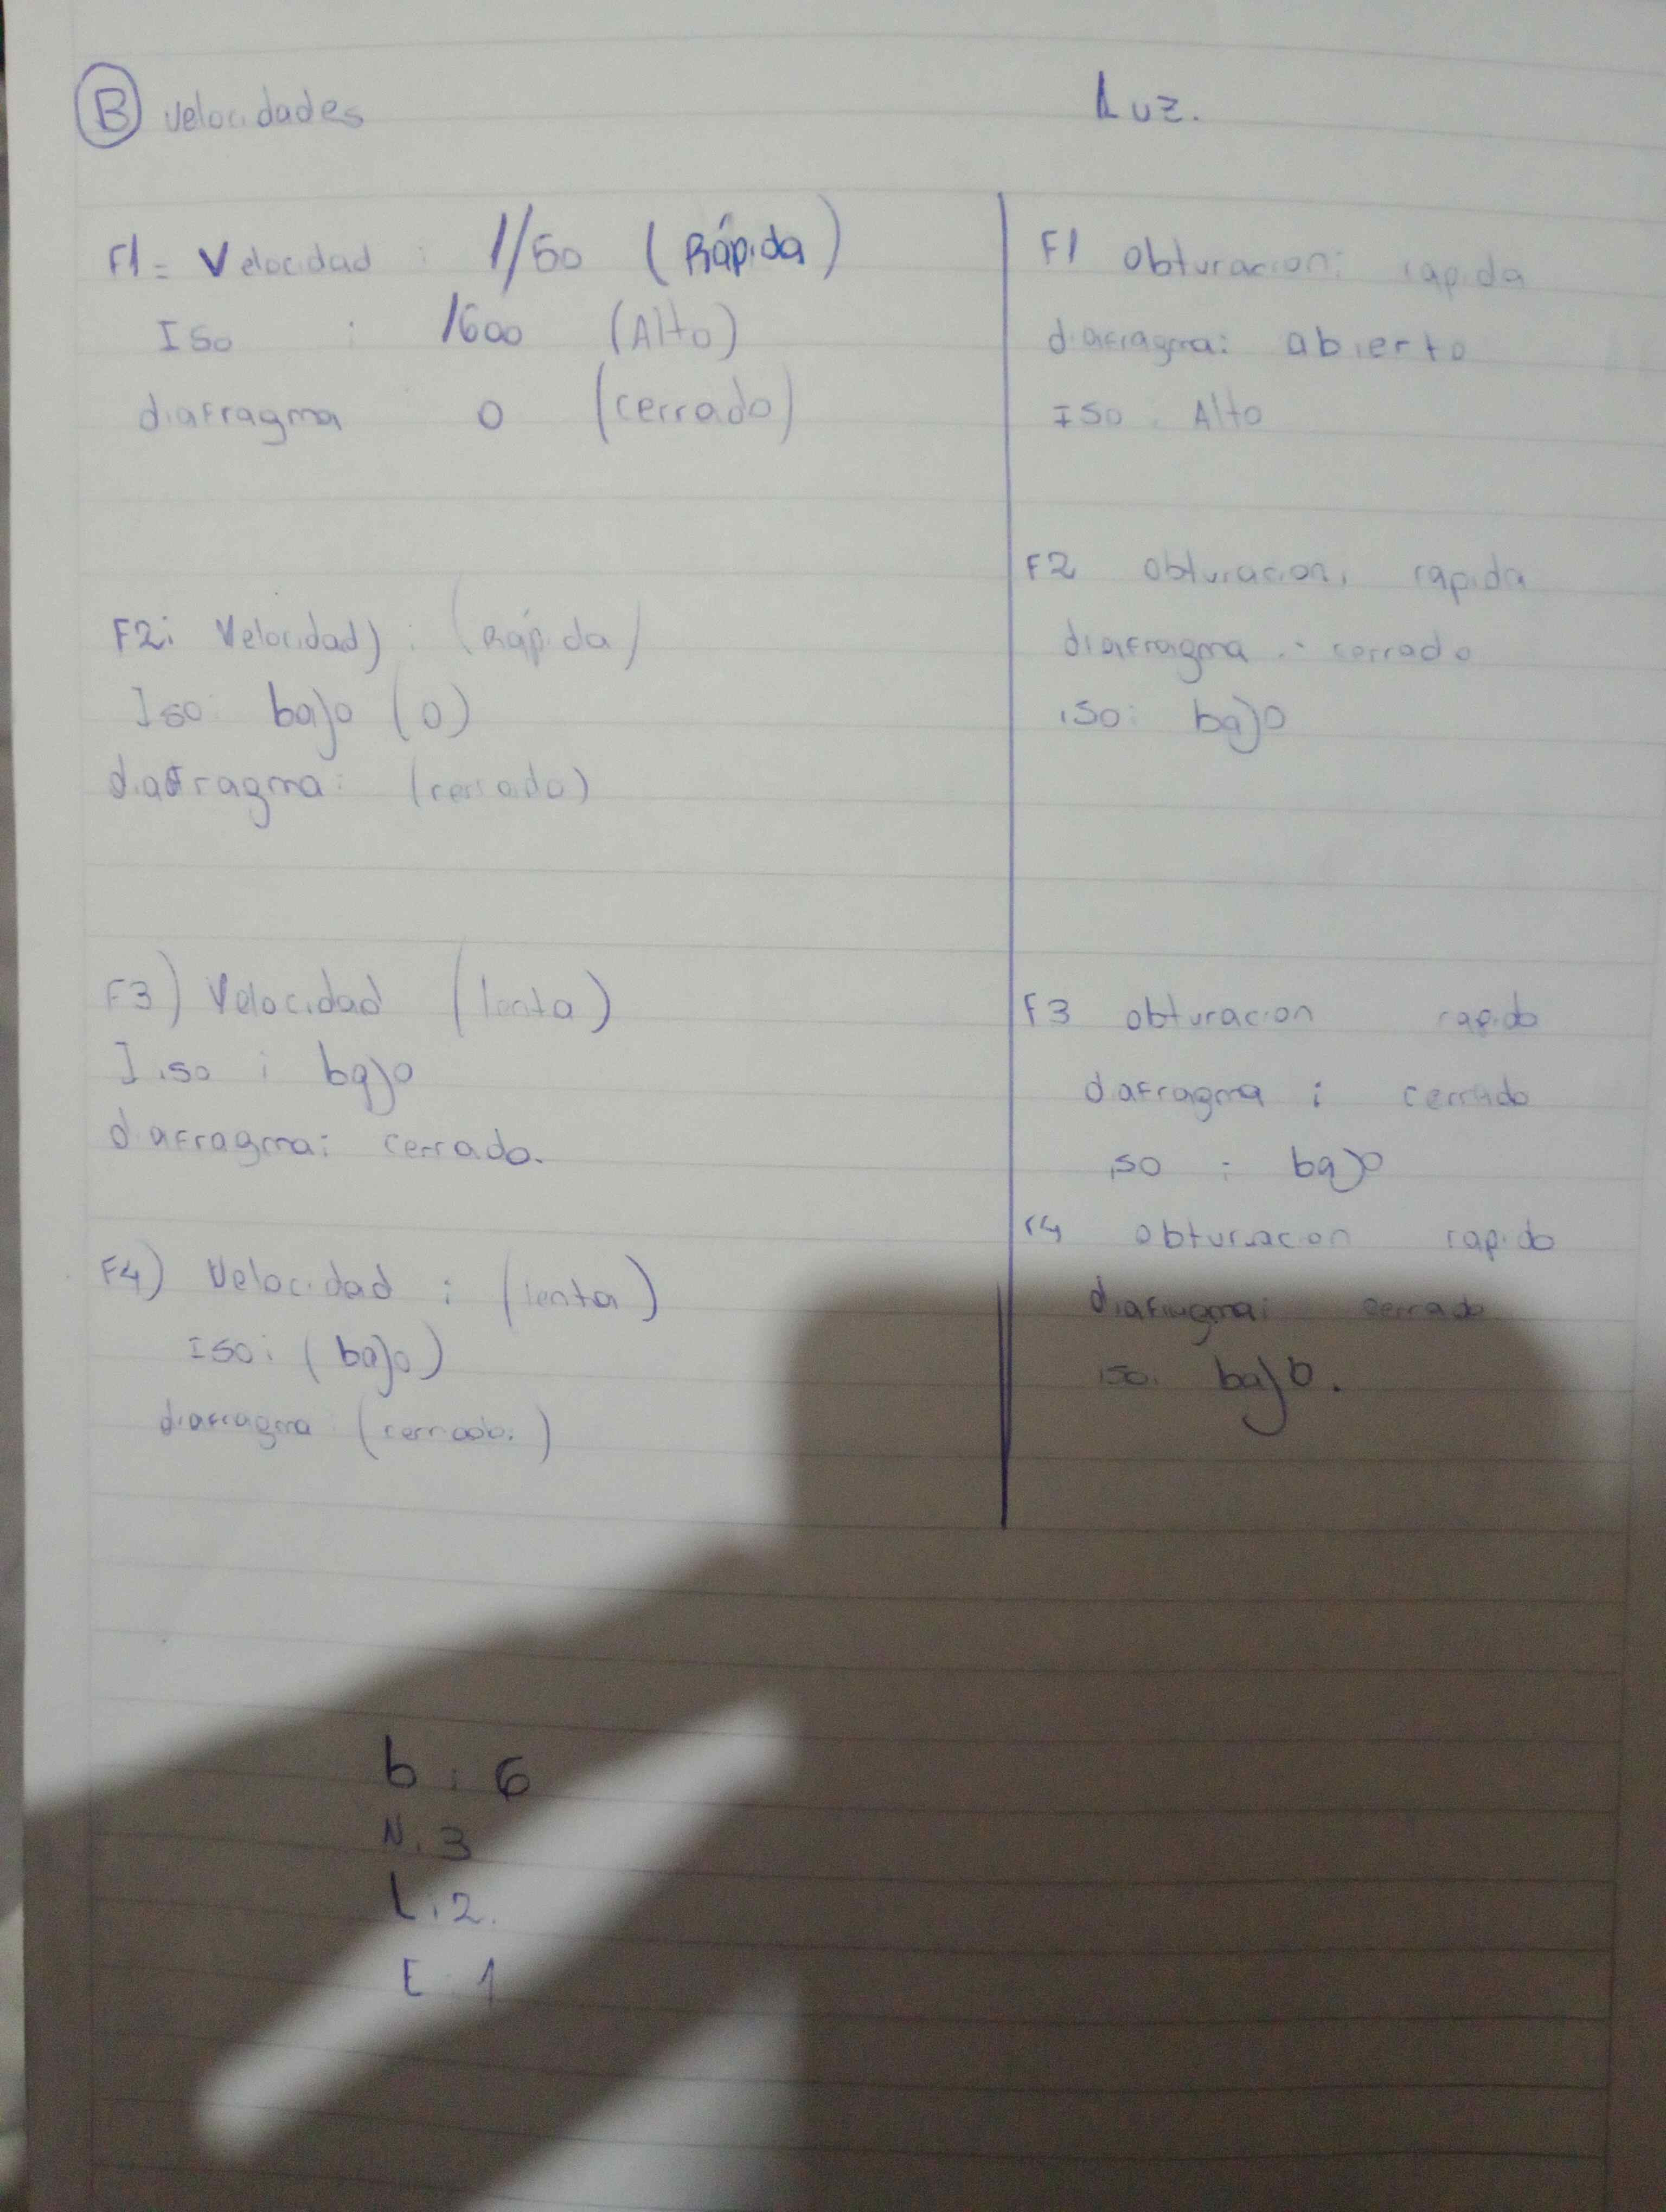 B velocidades
F1= Velocidad : 1/50 (Rápida)
Iso : 1600 (Alto)
diafragma 0 (cerrado)
F2: Velocidad) : (Rápida)
Iso: bajo (0)
diafragma: (cerrado)
F3) Velocidad (lenta)
I.iso : bajo
diafragma: cerrado.
F4) Velocidad : (lenta)
Iso: (bajo)
diafragma (cerrado.)
Luz.
F1 obturacion: rapida
diafragma: abierto
Iso : Alto
F2 obturacion: rapida
diafragma : cerrado
iso: bajo
F3 obturacion rapido
diafragma : cerrado
iso : bajo
F4 obturacion rapido
diafragma: cerrado
iso: bajo.
b : 6
N. 3
L:2.
E 1